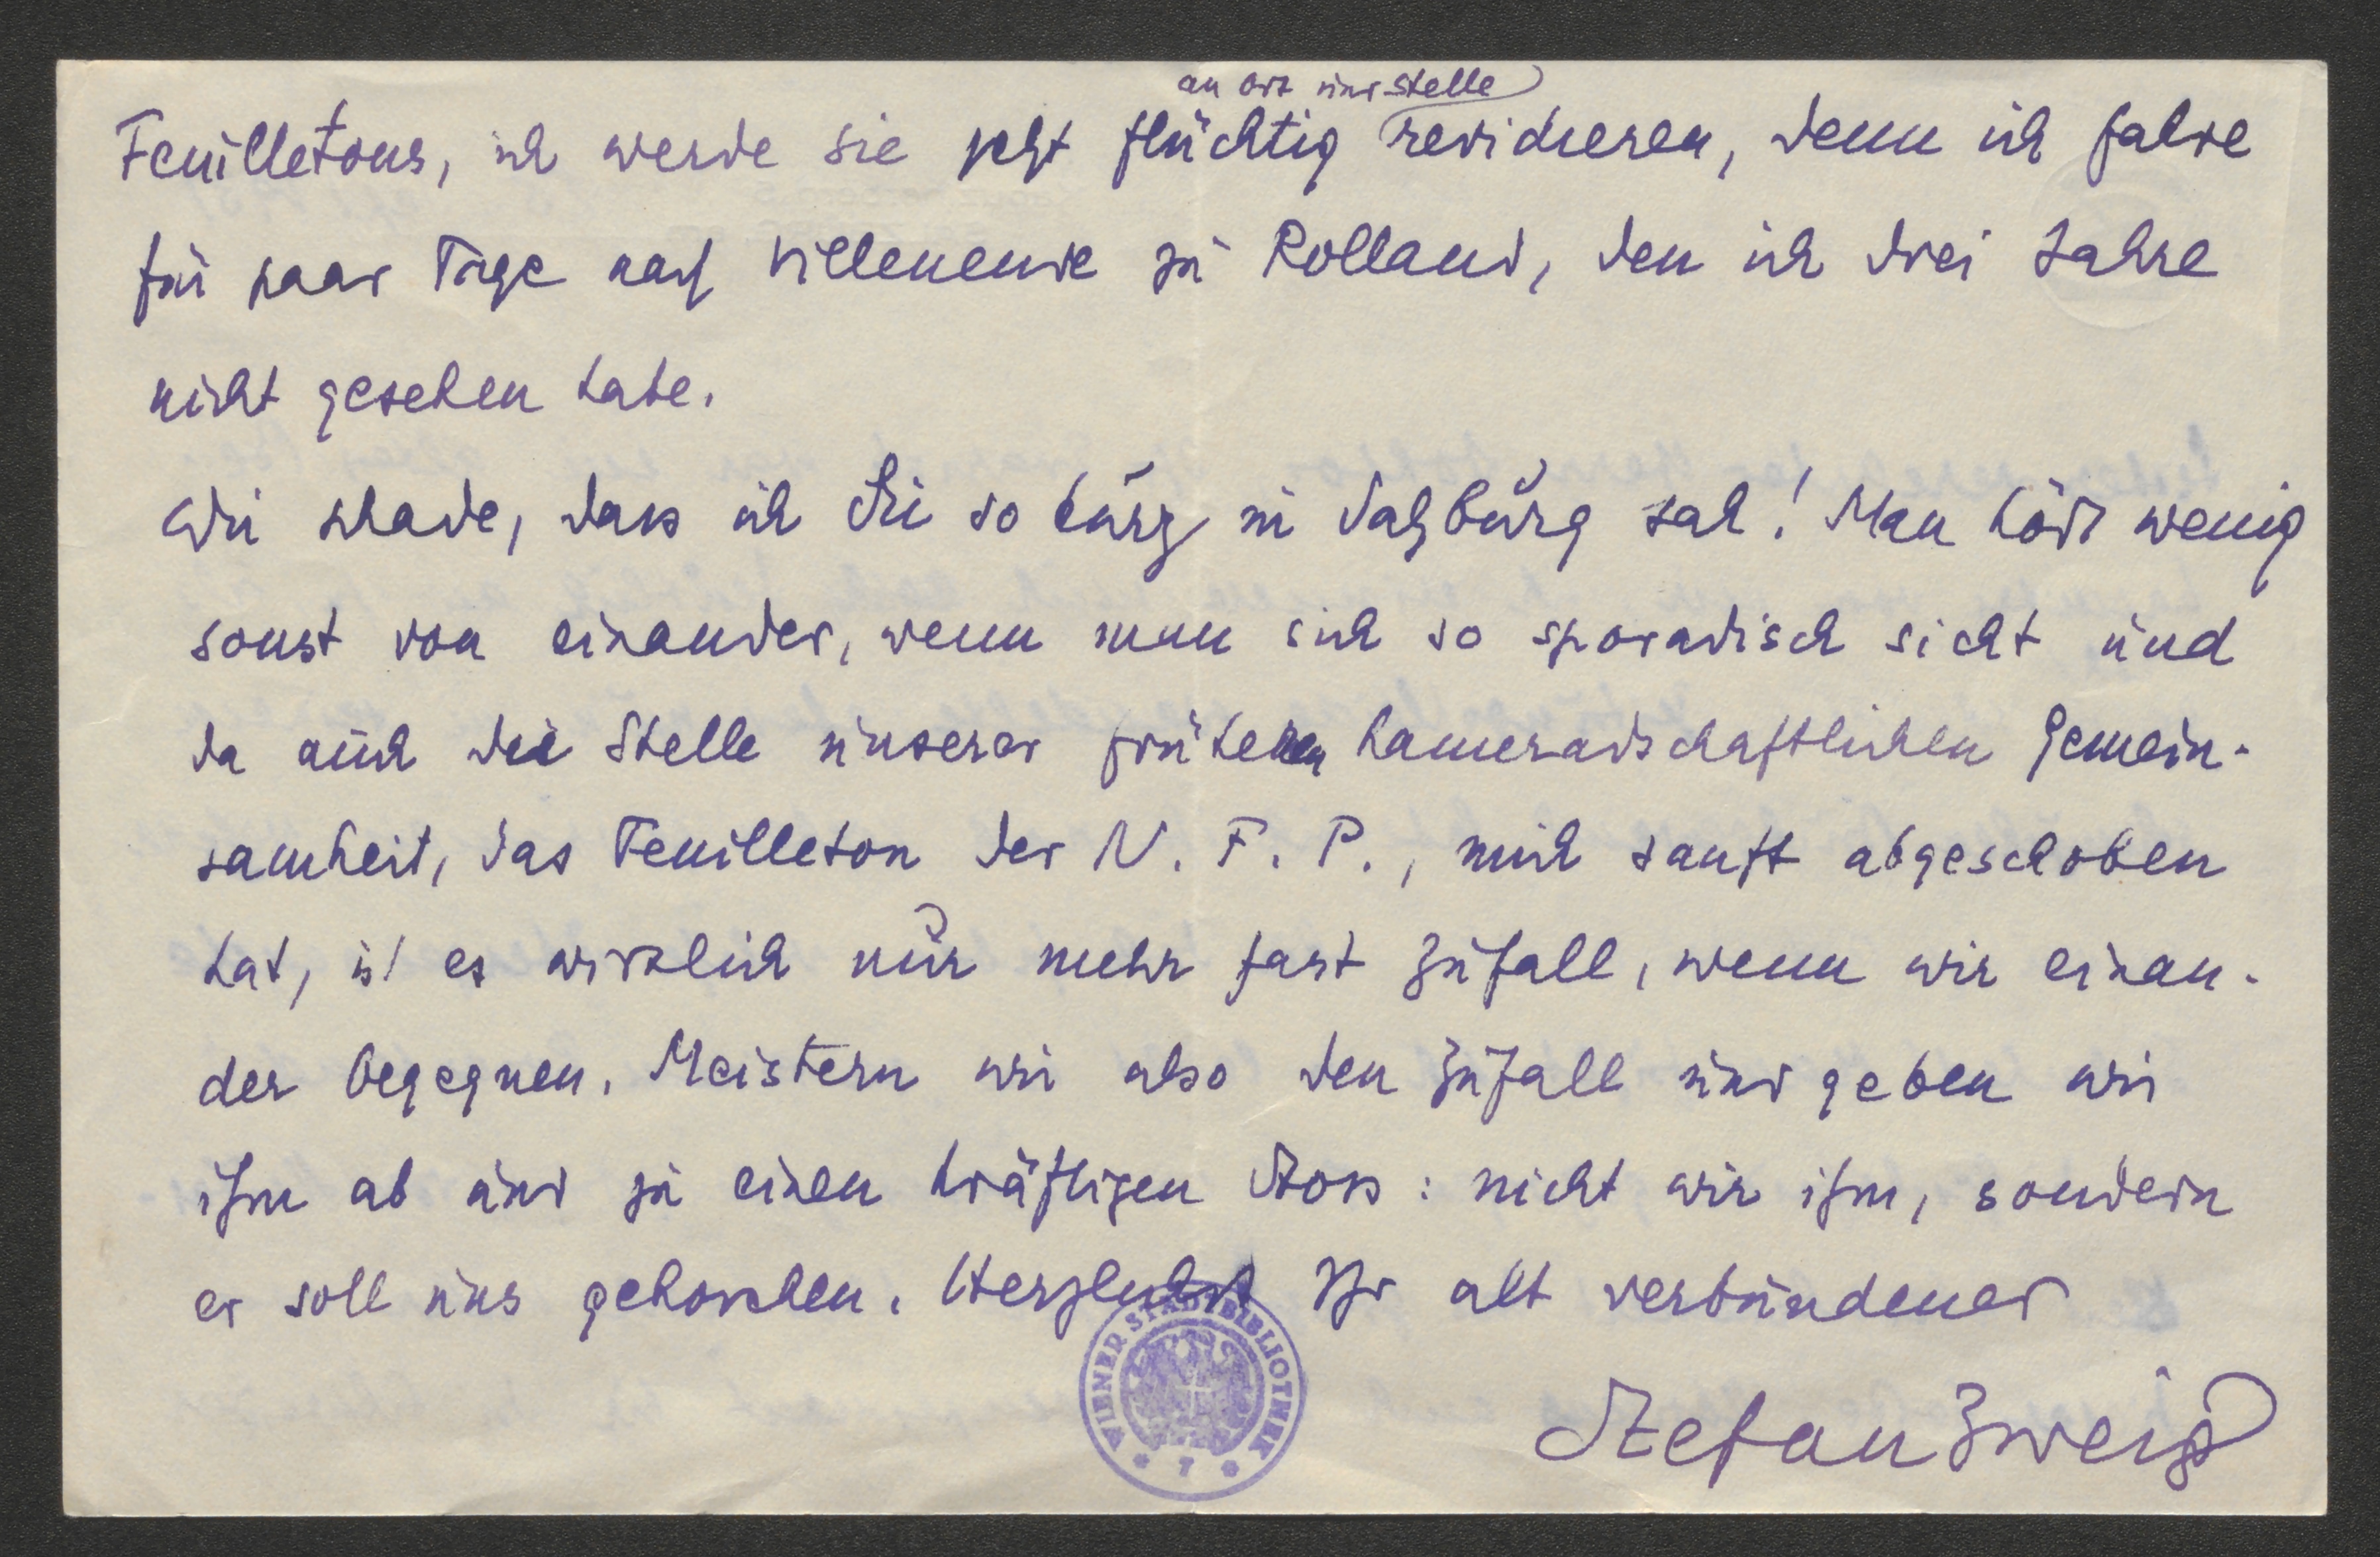 an Ort und Stelle
Feuilletons, ich werde sie jetzt flüchtig revidieren, denn ich fahre
für paar Tage nach Villeneuve zu Rolland, den ich drei Jahre
nicht gesehen habe.
Wie schade, dass ich Sie so kurz in Salzburg sah! Man hört wenig
sonst von einander, wenn man sich so sporadisch sieht und
da auch die Stelle unserer früheren kameradschaftlichen Gemein-
samkeit, das Feuilleton der N. F. P., mich sanft abgeschoben
hat, ist es wirklich nur mehr fast Zufall, wenn wir einan-
der begegnen. Meistern wir also den Zufall und geben wir
ihm ab und zu einen kräftigen Stoss: nicht wir ihm, sondern
er soll uns gehorchen. Herzlichst Ihr alt verbundener
Stefan Zweig
WIENER STADTBIBLIOTHEK
* 7 *